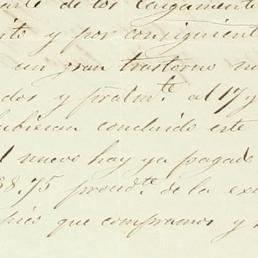 parte de los cargamento
ito y por consiguient
un gran trastorno n
dos y pralmte al 17 y
hubieran concluido este
l nuevo hay ya pagado
38.75 procedte de la ex
que compramos y